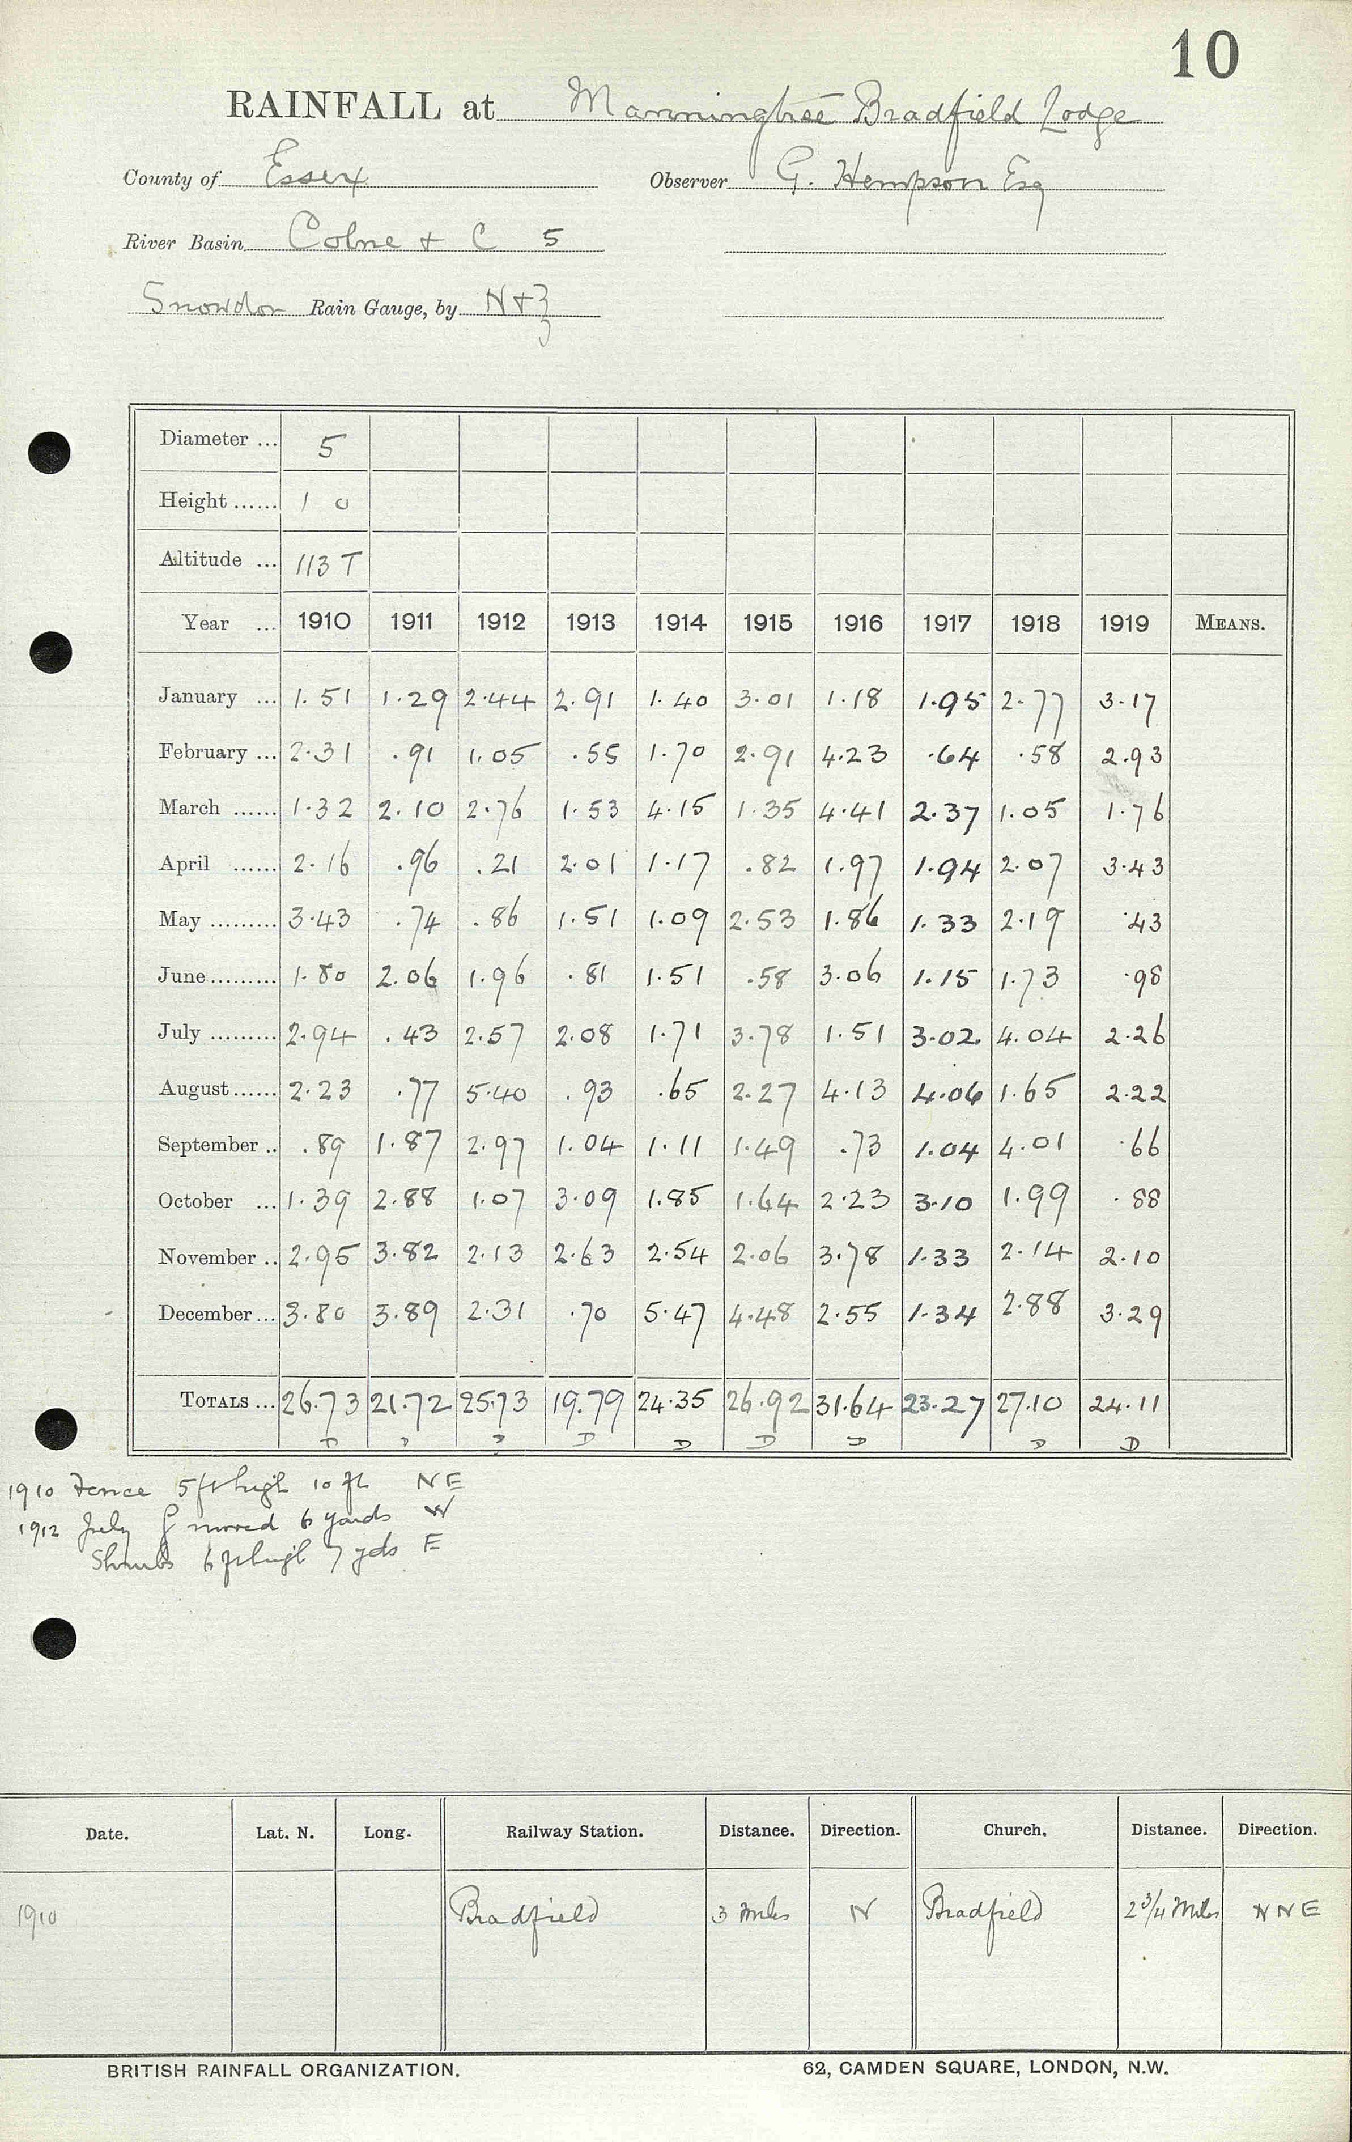 10
RAINFALL at Manningtree Bradfield Lodge
County of Essex Observer G. Hempson Esq
River Basin Colne & C 5
Snowdon Rain Gauge, by N & Z
Diameter ... 5
Height ...... 1 0
Altitude ... 113 T
Year ... 1910 1911 1912 1913 1914 1915 1916 1917 1918 1919 MEANS.
January ... 1.51 1.29 2.44 2.91 1.40 3.01 1.18 1.95 2.77 3.17
February ... 2.31 .91 1.05 .55 1.70 2.91 4.23 .64 .58 2.93
March ...... 1.32 2.10 2.76 1.53 4.15 1.35 4.41 2.37 1.05 1.76
April ...... 2.16 .96 .21 2.01 1.17 .82 1.97 1.94 2.07 3.43
May ......... 3.43 .74 .86 1.51 1.09 2.53 1.86 1.33 2.19 .43
June ......... 1.80 2.06 1.96 .81 1.51 .58 3.06 1.15 1.73 .98
July ......... 2.94 .43 2.57 2.08 1.71 3.78 1.51 3.02 4.04 2.26
August ...... 2.23 .77 5.40 .93 .65 2.27 4.13 4.06 1.65 2.22
September .. .89 1.87 2.97 1.04 1.11 1.49 .73 1.04 4.01 .66
October ... 1.39 2.88 1.07 3.09 1.85 1.64 2.23 3.10 1.99 .88
November .. 2.95 3.82 2.13 2.63 2.54 2.06 3.78 1.33 2.14 2.10
December ... 3.80 3.89 2.31 .70 5.47 4.48 2.55 1.34 2.88 3.29
TOTALS ... 26.73 21.72 25.73 19.79 24.35 26.92 31.64 23.27 27.10 24.11
D D D D D D D D D
1910 Fence 5 ft high 10 ft NE
1912 July G moved 6 yards W
Shrubs 6 ft high 7 yds E
Date. Lat. N. Long. Railway Station. Distance. Direction. Church. Distance. Direction.
1910 Bradfield 3 Miles N Bradfield 2 3/4 Miles NNE
BRITISH RAINFALL ORGANIZATION. 62, CAMDEN SQUARE, LONDON, N.W.